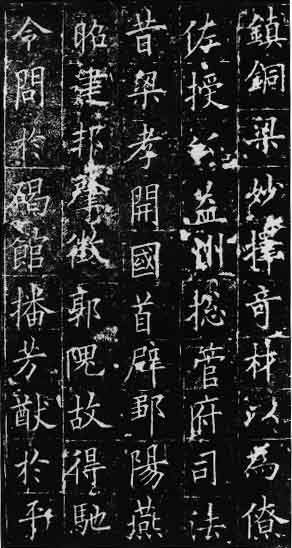 鎮銅梁妙擇奇材以為僚
佐授公益州捴管府司法
昔梁孝開國首辟鄒陽燕
昭建邦肇徵郭隗故得馳
令問於碣館播芳猷於平